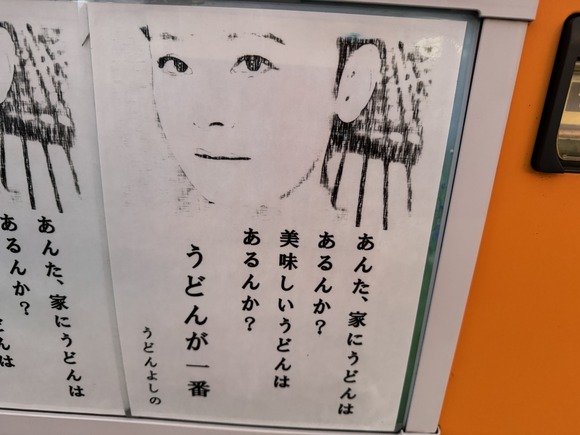 あんた、家にうどんは
あるんか？
美味しいうどんは
あるんか？
うどんが一番
うどんよしの
あんた、家にうどんは
あるんか？